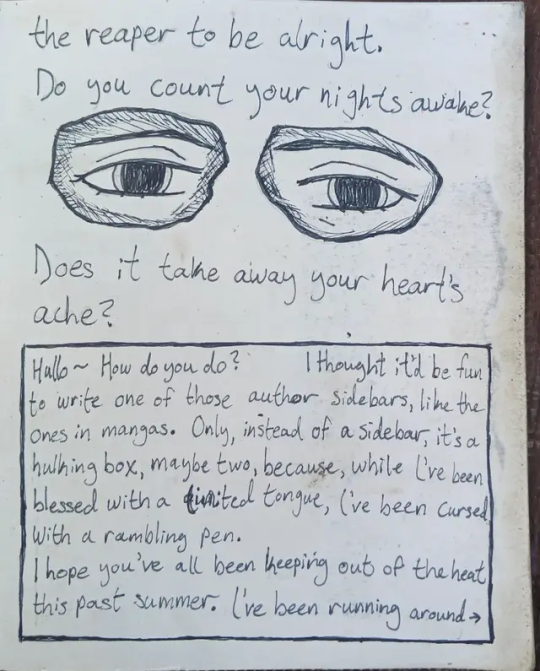 the reaper to be alright.
Do you count your nights awake?
Does it take away your heart's
ache?
Hallo ~ How do you do? I thought it'd be fun
to write one of those author sidebars, like the
ones in mangas. Only, instead of a sidebar, it's a
hulking box, maybe two, because, while I've been
blessed with a limited tongue, I've been cursed
with a rambling pen.
I hope you've all been keeping out of the heat
this past summer. I've been running around →